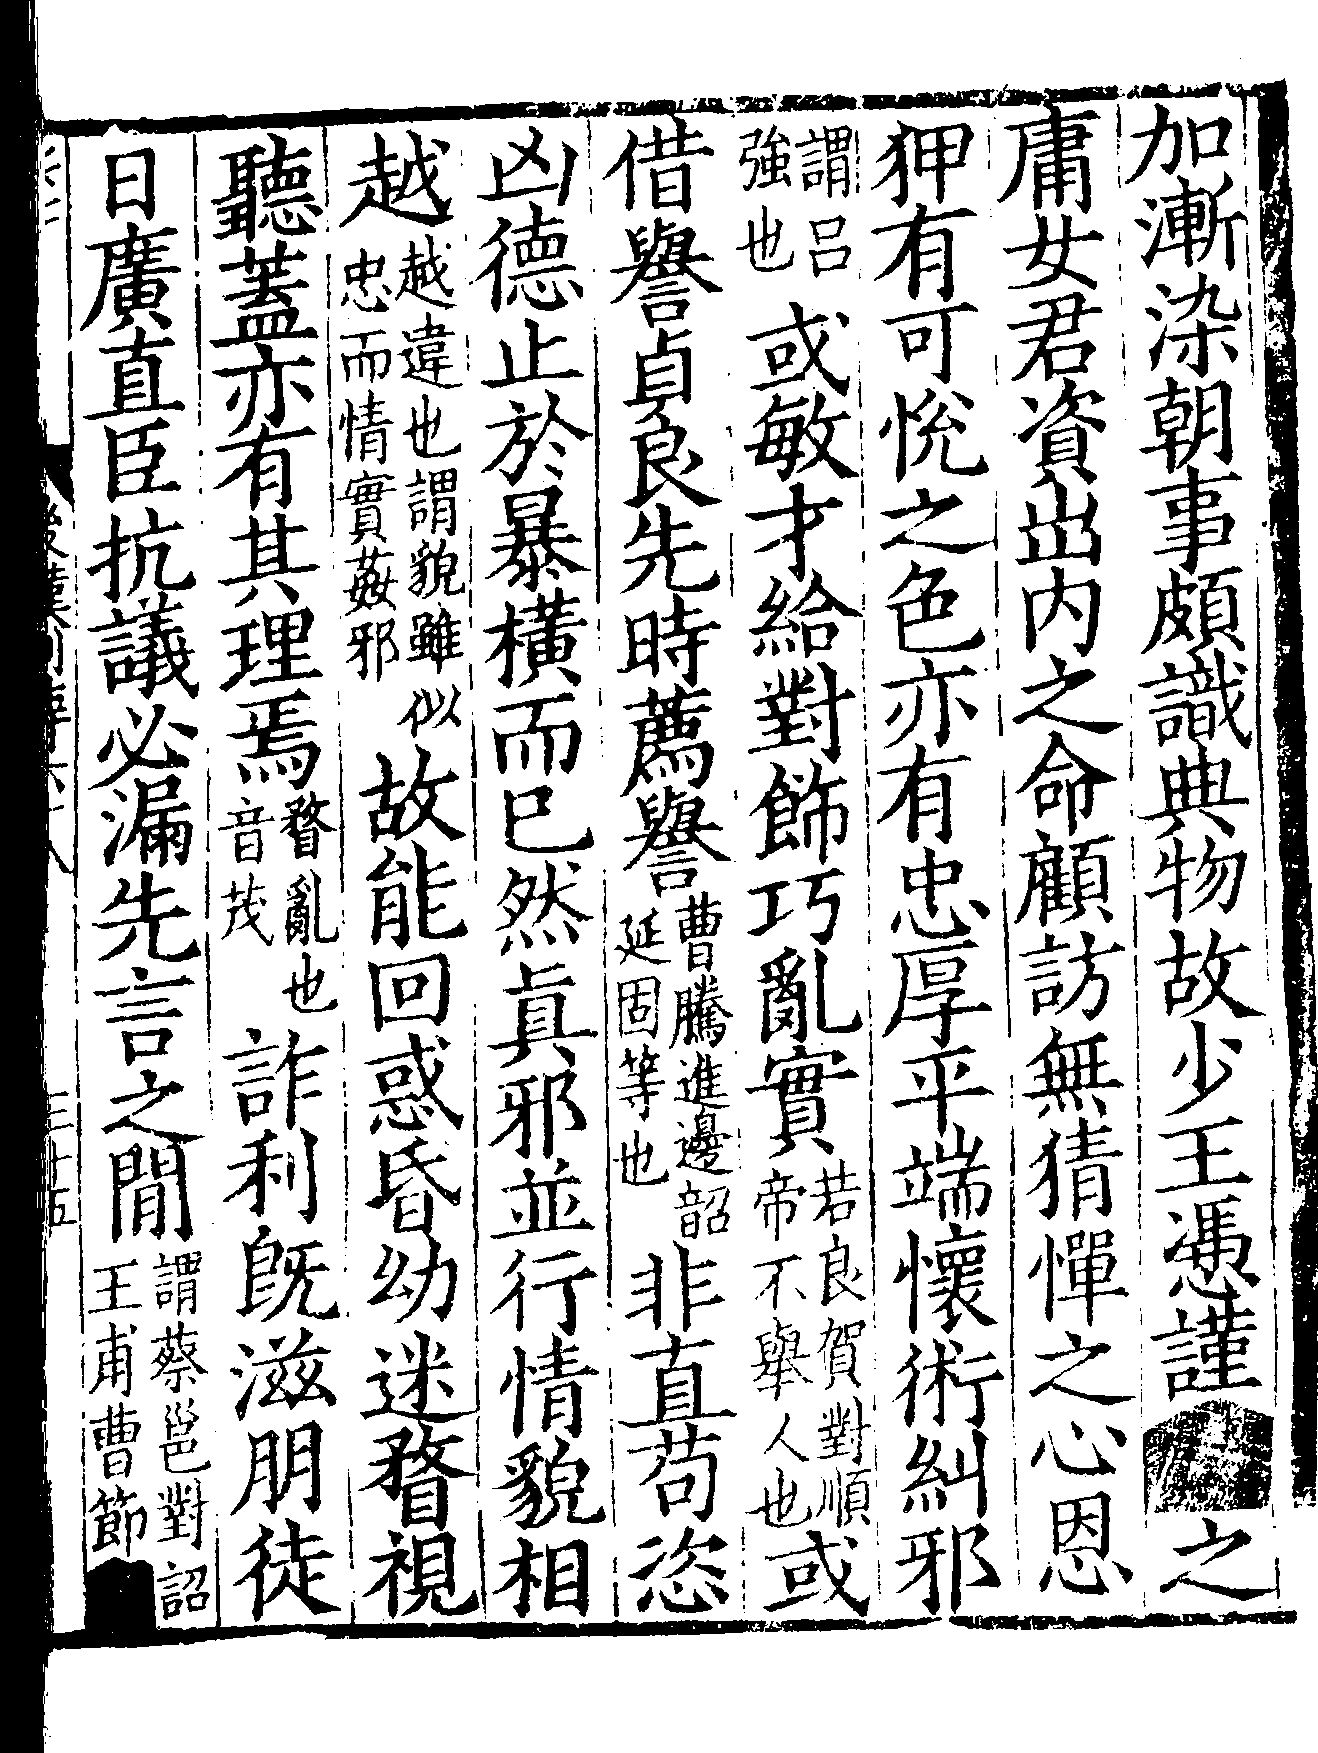 加漸染朝事頗識典物故少主憑謹之
庸女君資出內之命顧訪無猜憚之心恩
狎有可悅之色亦有忠厚平端懷術糾邪
謂呂
強也
或敏才給對飾巧亂實
若良賀對順
帝不舉人也
或
借譽貞良先時薦譽
曹騰進邊韶
延固等也
非直苟恣
凶德止於暴橫而已然真邪並行情貌相
越
越違也謂貌雖似
忠而情實姦邪
故能回惑昏幼迷瞀視
聽蓋亦有其理焉
瞀亂也
音茂
詐利既滋朋徒
日廣直臣抗議必漏先言之間
謂蔡邕對詔
王甫曹節